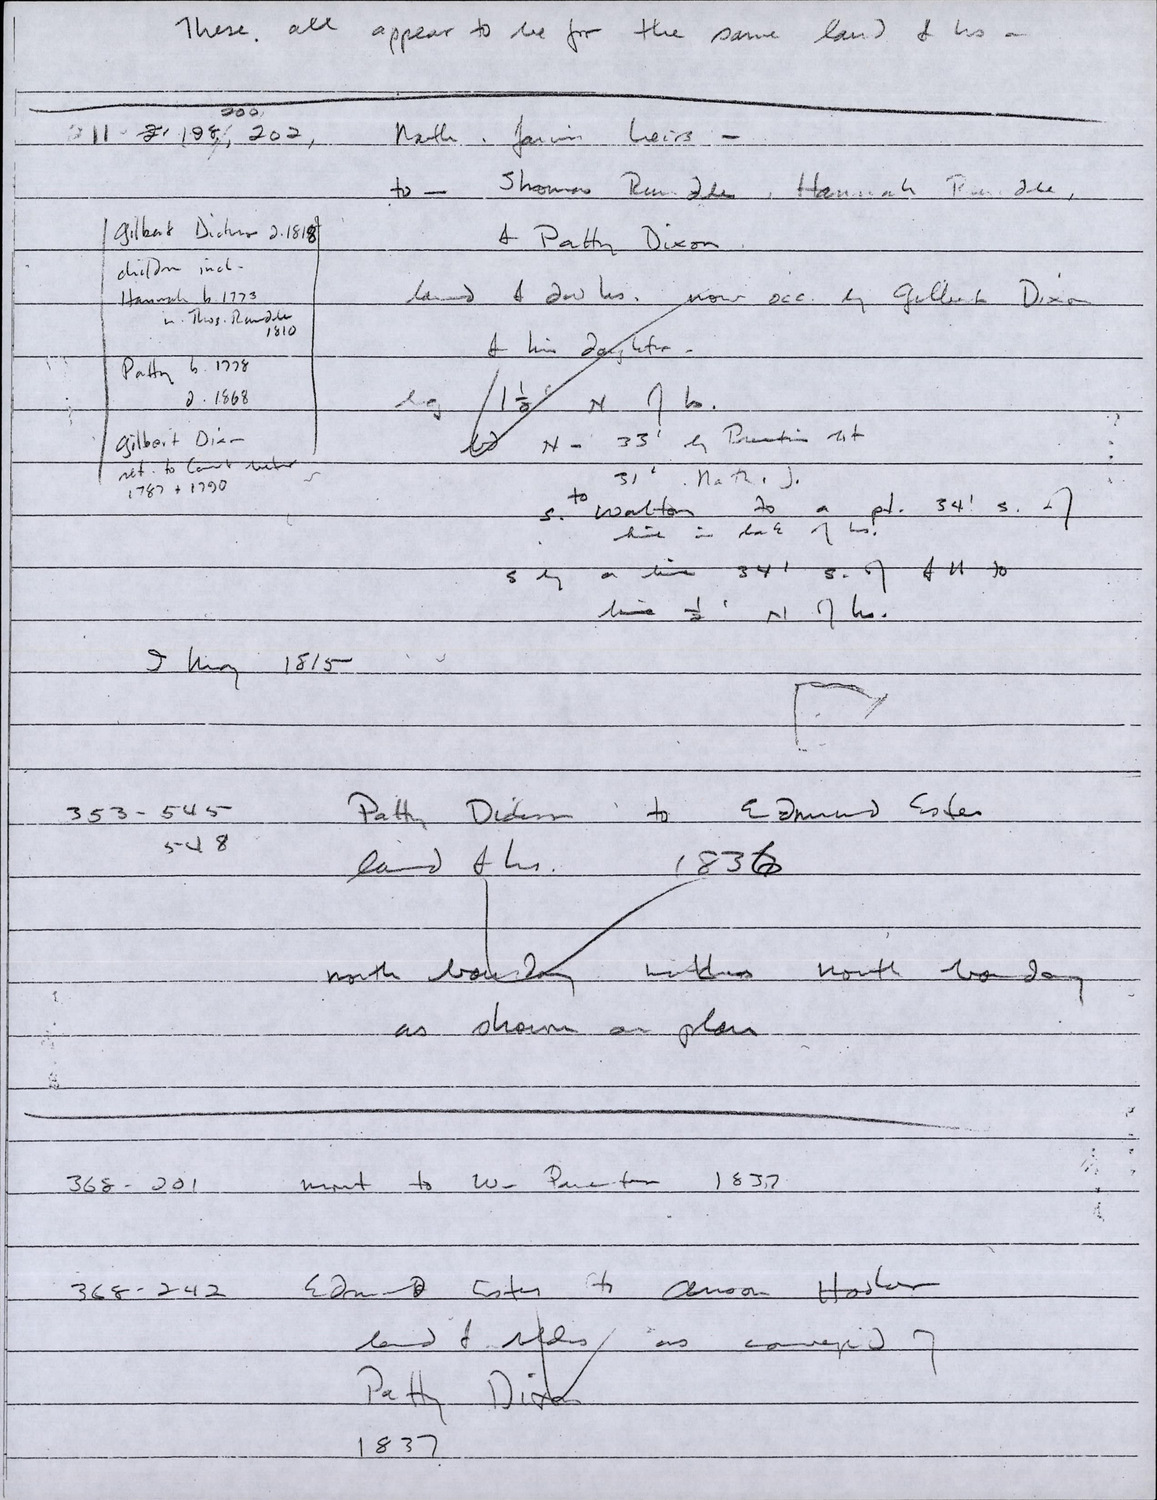 These all appear to be for the same land & hs -
200,
211 - 198, 202,
Nath. Jarvis heirs -
to - Thomas Rundle, Hannah Rundle,
& Patty Dixon
land & dw hs. now occ. by Gilbert Dixon
& his daughter -
Gilbert Dickson d. 1818
children incl.
Hannah b. 1773
m. Thos. Rundle
1810
Patty b. 1778
d. 1868
Gilbert Dixon
ref. to Court
1787 + 1790
beg 1 1/2' N of hs.
N - 33' by
31' Nath. J.
s. to Walton to a pt. 34' s. of
line in back of hs.
s by a line 34' s. of to
line 1/2' N of hs.
May 1815
353-545
548
Patty Dickson to Edmund Estes
land & hs. 1836
north boundary north boundary
as shown on plan
368-201 mort to W 1837
368-242 Edmund Estes to Anson Hooker
land & bldgs as conveyed of
Patty Dixon
1837